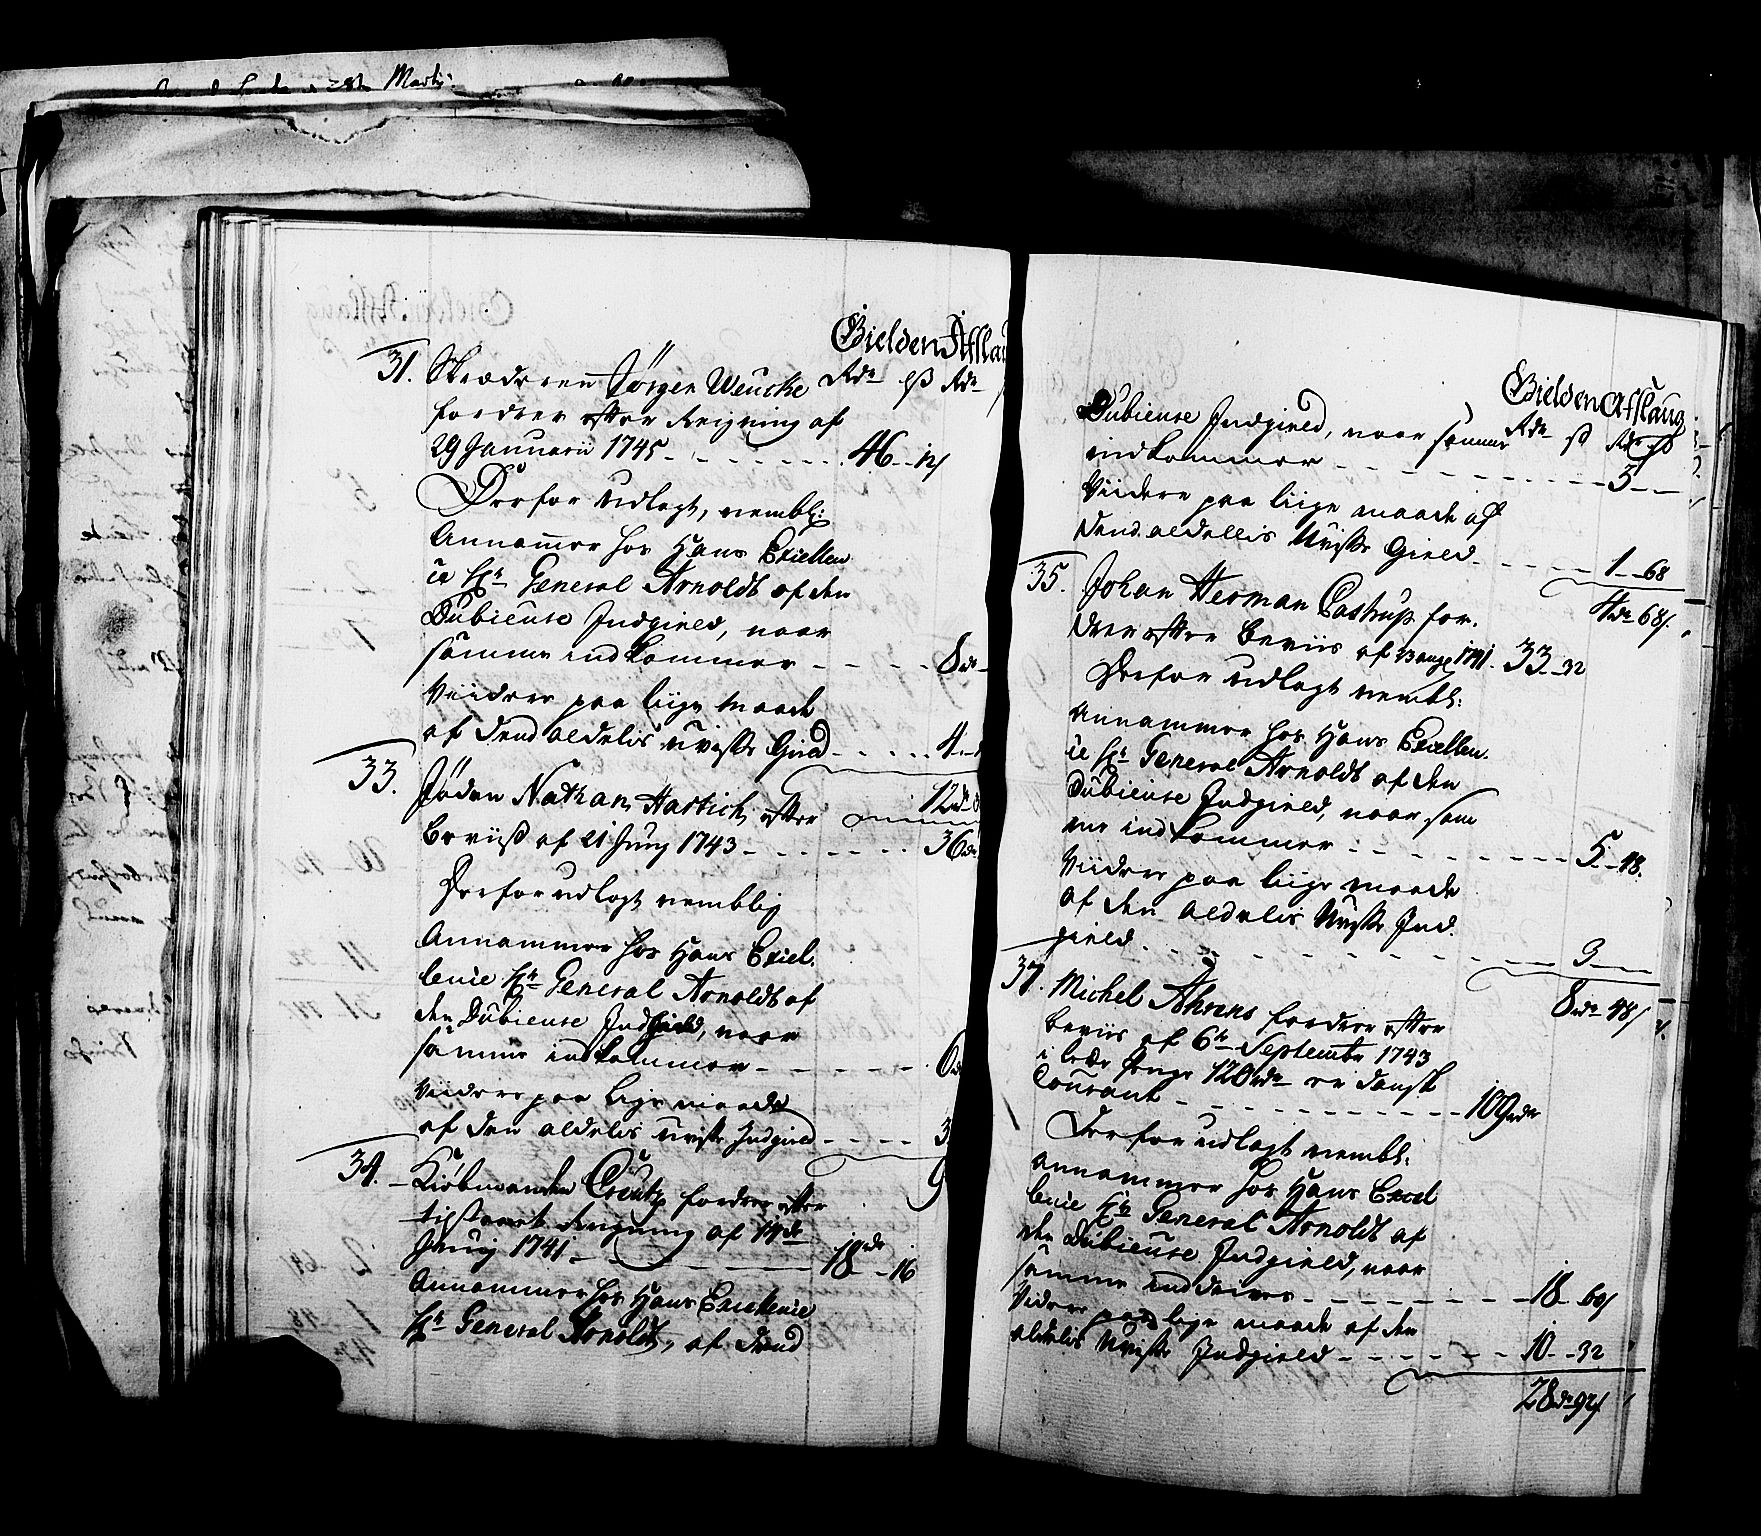 28de Martij
Gielden Afslau
Rdr ß Rdr
31. Skrædderen Jørgen Wencke
fordrer efter Reigning af
29 Januarii 1745 - - - - 46 - 12ß
Derfor udlagt, nembl:
Annammer hos Hans Excellen
ce Hr General Arnoldt af den
Dubieuse Indgield, naar
samme indkommer - - - - 8rdr
Viidere paa liige maade
af dend aldelis uviste Gield - - - - 4
12rdr
33. Jøden Nathan Hartich efter
Beviiß af 21 Junij 1743 - - - - 36rdr
Derfor udlagt nemblig
Annammer hos Hans Excel-
lence Hr General Arnoldt af
den Dubieuse Indgield, naar
samme indkommer - - - - 6rd
Viidere paa lige maade
af den aldelis uviste Indgield - - - - 3
9
34. Kiøbmanden Creutz fordrer efter
tilstaaet Reigning af 14de
Junij 1741 - - - - 18rdr - 16
Annammer hos Hans Excellence
Hr General Arnoldt, af dend
Gielden Afslaug
Rdr ß Rdr ß
Dubieuse Indgield, naar samme
indkommer - - - - 3 - -
Viidere paa liige maade af
dend aldellis Uviste Gield - - - - 1 - 68
4rdr 68ß
35. Johan Herman Castrup for-
drer efter Beviis af 13 aug 1741 - 33 - 32
Derfor udlagt nembl:
Annammer hos Hans Excellen-
ce Hr General Arnoldt af den
Dubieuse Indgield, naar sam
me indkommer - - - - 5 - 48
Viidere paa liige maade
af den aldelis Uviste Ind-
gield - - - - 3 - -
8rdr 48ß
37. Michel Ahrens fordrer efter
Beviis af 6te Septembr 1743
i Penge 120rdr er dansk
Courant - - - - 109rdr
Derfor udlagt nembl:
annammer hos Hans Excel
lence Hr General Arnoldt af
den Dubieuse Indgield, naar
samme inddrives - - - - 18 - 60ß
Videre paa lige maade af den
aldelis Uviste Indgield - - - - 10 - 32
28rdr 92ß